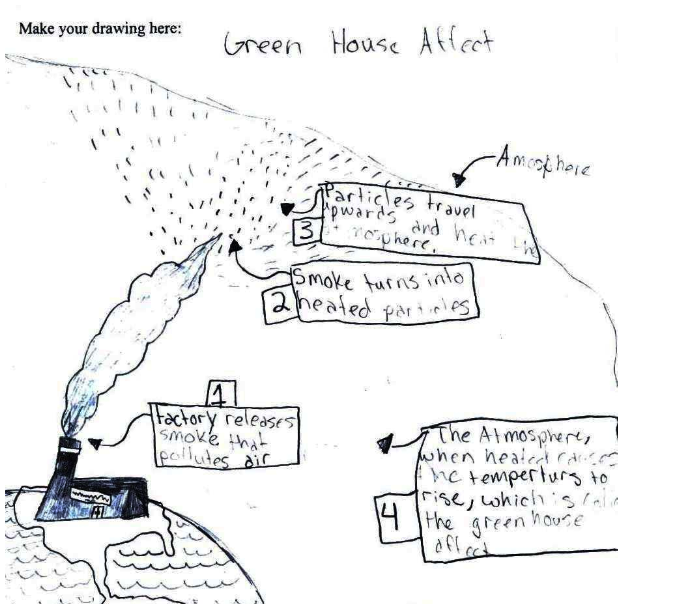 Make your drawing here:
Green House Affect
Amosphere
Particles travel
upwards and heat the
atmosphere.
3
Smoke turns into
heated particles
2
1
factory releases
smoke that
pollutes air
The Atmosphere,
when heated causes
the temperturs to
rise, which is
the greenhouse
affect
4